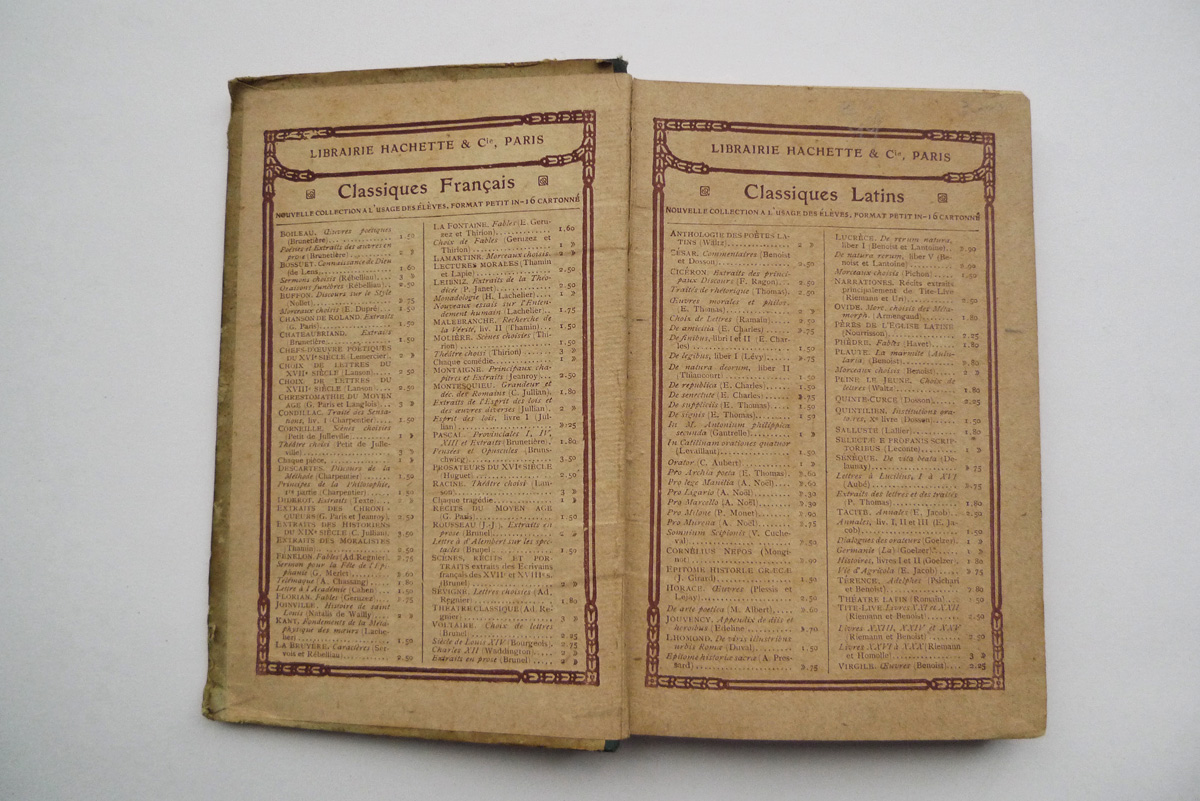 LIBRAIRIE HACHETTE & Cie, PARIS
Classiques Français
NOUVELLE COLLECTION A L'USAGE DES ÉLÈVES, FORMAT PETIT IN-16 CARTONNÉ
BOILEAU. Œuvres poétiques
(Brunetière) 1.50
Poésies et Extraits des œuvres en
prose (Brunetière) 2 »
BOSSUET. Connaissance de Dieu
(de Lens) 1.60
Sermons choisis (Rébelliau) 3 »
Oraisons funèbres (Rébelliau) 2.50
BUFFON. Discours sur le Style
(Nollet)
Morceaux choisis (E. Dupré) 1.50
CHANSON DE ROLAND. Extraits
(G. Paris) 1.50
CHATEAUBRIAND. Extraits
(Brunetière) 1.50
CHEFS-D'ŒUVRE POÉTIQUES
DU XVIe SIÈCLE (Lemercier) 2 »
CHOIX DE LETTRES DU
XVIIe SIÈCLE (Lanson) 2.50
CHOIX DE LETTRES DU
XVIIIe SIÈCLE (Lanson) 2.50
CHRESTOMATHIE DU MOYEN
AGE (G. Paris et Langlois) 3 »
CONDILLAC. Traité des Sensa-
tions, liv. I (Charpentier) 1.50
CORNEILLE. Scènes choisies
(Petit de Julleville) 1 »
Théâtre choisi (Petit de Julle-
ville) 3 »
Chaque pièce 1 »
DESCARTES. Discours de la
Méthode (Charpentier) 1.50
Principes de la Philosophie,
1re partie (Charpentier) 1.50
DIDEROT. Extraits (Texte) 2 »
EXTRAITS DES CHRONI-
QUEURS (G. Paris et Jeanroy) 2.50
EXTRAITS DES HISTORIENS
DU XIXe SIÈCLE (C. Jullian) 3.50
EXTRAITS DES MORALISTES
(Thamin) 2.50
FÉNELON. Fables (Ad. Regnier) .75
Sermon pour la Fête de l'Épi-
phanie (G. Merlet) .60
Télémaque (A. Chassang) 1.80
Lettre à l'Académie (Cahen) 1.50
FLORIAN. Fables (Geruzez) .75
JOINVILLE. Histoire de saint
Louis (Natalis de Wailly) 2 »
KANT. Fondements de la Méta-
physique des mœurs (Lache-
lier) 1.50
LA BRUYÈRE. Caractères (Ser-
vois et Rébelliau) 2.50
LA FONTAINE. Fables (E. Geru-
zez et Thirion) 1.60
Choix de Fables (Geruzez et
Thirion) 1 »
LAMARTINE. Morceaux choisis 2 »
LECTURES MORALES (Thamin
et Lapie) 2.50
LEIBNIZ. Extraits de la Théo-
dicée (P. Janet) 2.50
Monadologie (H. Lachelier) 1 »
Nouveaux essais sur l'Enten-
dement humain (Lachelier) 1.75
MALEBRANCHE. Recherche de
la Vérité, liv. II (Thamin) 1.50
MOLIÈRE. Scènes choisies (Thi-
rion) 1.50
Théâtre choisi (Thirion) 3 »
Chaque comédie 1 »
MONTAIGNE. Principaux cha-
pitres et Extraits (Jeanroy) 2.50
MONTESQUIEU. Grandeur et
déc. des Romains (C. Jullian) 1.80
Extraits de l'Esprit des lois et
des œuvres diverses (Jullian) 2 »
Esprit des lois, livre I (Jul-
lian) .25
PASCAL. Provinciales I, IV,
XIII et Extraits (Brunetière) 1.80
Pensées et Opuscules (Bruns-
chvicg) 3.50
PROSATEURS DU XVIe SIÈCLE
(Huguet) 2.50
RACINE. Théâtre choisi (Lan-
son) 3 »
Chaque tragédie 1 »
RÉCITS DU MOYEN AGE
(G. Paris) 1.50
ROUSSEAU (J.-J.). Extraits en
prose (Brunel) 2 »
Lettre à d'Alembert sur les spec-
tacles (Brunel) 1.50
SCÈNES, RÉCITS ET POR-
TRAITS extraits des Écrivains
français des XVIIe et XVIIIe s.
(Brunel) 2 »
SÉVIGNÉ. Lettres choisies (Ad.
Regnier) 1.80
THÉATRE CLASSIQUE (Ad. Re-
gnier) 3 »
VOLTAIRE. Choix de lettres
(Brunel) 2.25
Siècle de Louis XIV (Bourgeois) 2.75
Charles XII (Waddington) 2 »
Extraits en prose (Brunel) 2 »
LIBRAIRIE HACHETTE & Cie, PARIS
Classiques Latins
NOUVELLE COLLECTION A L'USAGE DES ÉLÈVES, FORMAT PETIT IN-16 CARTONNÉ
ANTHOLOGIE DES POÈTES LA-
TINS (Waltz) 2 »
CÉSAR. Commentaires (Benoist
et Dosson) 2.50
CICÉRON. Extraits des princi-
paux Discours (F. Ragon) 2.50
Traités de rhétorique (Thomas) 2.50
Œuvres morales et philos.
(E. Thomas) 2 »
Choix de Lettres (Ramain) 2 »
De amicitia (E. Charles) .75
De finibus, libri I et II (E. Char-
les) 1.50
De legibus, liber I (Lévy) .75
De natura deorum, liber II
(Thiaucourt) 1.50
De republica (E. Charles) 1.50
De senectute (E. Charles) .75
De suppliciis (E. Thomas) 1.50
De signis (E. Thomas) 1.50
In M. Antonium philippica
secunda (Gantrelle) 1 »
In Catilinam orationes quatuor
(Levaillant) 1.50
Orator (C. Aubert) 1 »
Pro Archia poeta (E. Thomas) .60
Pro lege Manilia (A. Noël) .60
Pro Ligario (A. Noël) .30
Pro Marcello (A. Noël) .30
Pro Milone (P. Monet) .90
Pro Murena (A. Noël) .75
Somnium Scipionis (V. Cuche-
val) .50
CORNÉLIUS NEPOS (Mongi-
not) .90
EPITOME HISTORIÆ GRÆCÆ
(J. Girard) 1.50
HORACE. Œuvres (Plessis et
Lejay) 2.50
De arte poetica (M. Albert) .60
JOUVENCY. Appendix de diis et
heroibus (Edeline) .70
LHOMOND. De viris illustribus
urbis Romæ (Duval) 1.50
Epitome historiæ sacræ (A. Pres-
sard) .75
LUCRÈCE. De rerum natura,
liber I (Benoist et Lantoine) .90
De natura rerum, liber V (Be-
noist et Lantoine) .90
Morceaux choisis (Pichon) 1.50
NARRATIONES. Récits extraits
principalement de Tite-Live
(Riemann et Uri) 2.50
OVIDE. Morc. choisis des Méta-
morph. (Armengaud) 1.80
PÈRES DE L'ÉGLISE LATINE
(Nourrisson) 2.25
PHÈDRE. Fables (Havet) 1.80
PLAUTE. La marmite (Aulu-
laria) (Benoist) .80
Morceaux choisis (Benoist) 2 »
PLINE LE JEUNE. Choix de
lettres (Waltz) 1.80
QUINTE-CURCE (Dosson) 2.25
QUINTILIEN. Institutions ora-
toires, Xe livre (Dosson) 1.50
SALLUSTE (Lallier) 1.80
SELECTÆ E PROFANIS SCRIP-
TORIBUS (Leconte) 1 »
SÉNÈQUE. De vita beata (De-
launay) .75
Lettres à Lucilius, I à XVI
(Aubé) .75
Extraits des lettres et des traités
(P. Thomas) 1.80
TACITE. Annales (E. Jacob) 2.50
Annales, liv. I, II et III (E. Ja-
cob) 1.50
Dialogues des orateurs (Goelzer) 1 »
Germanie (La) (Goelzer) 1 »
Histoires, livres I et II (Goelzer) 1.80
Vie d'Agricola (E. Jacob) .75
TÉRENCE. Adelphes (Psichari
et Benoist) .80
THÉATRE LATIN (Romain) 2.50
TITE-LIVE. Livres XXI et XXII
(Riemann et Benoist) 2.50
Livres XXIII, XXIV et XXV
(Riemann et Benoist) 2.50
Livres XXVI à XXX (Riemann
et Homolle) 3 »
VIRGILE. Œuvres (Benoist) 2.25